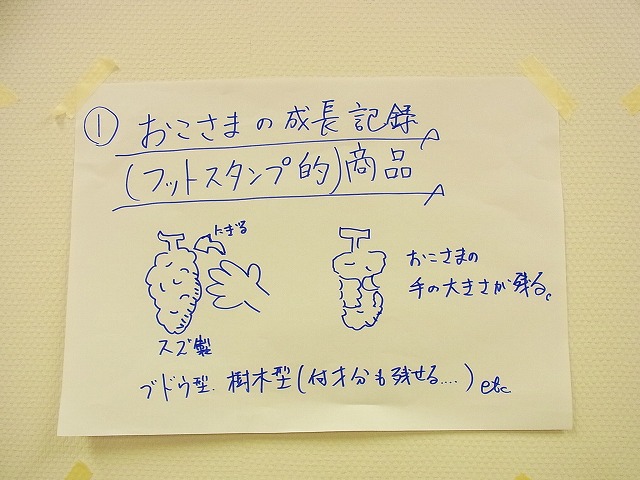 ① おこさまの成長記録
(フットスタンプ的)商品
にぎる
おこさまの
手の大きさが残る。
スズ製
ブドウ型. 樹木型(付才分も残せる....) etc